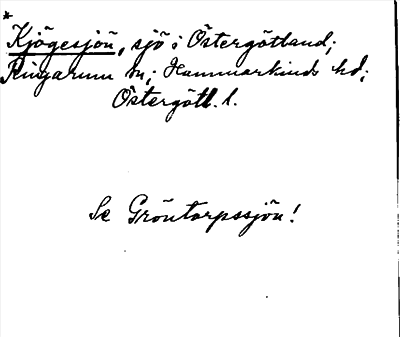 * Kjögesjön, sjö i Östergötland;
Ringarum sn; Hammarkinds hd;
Östergötl. l.
Se Gröntorpssjön!